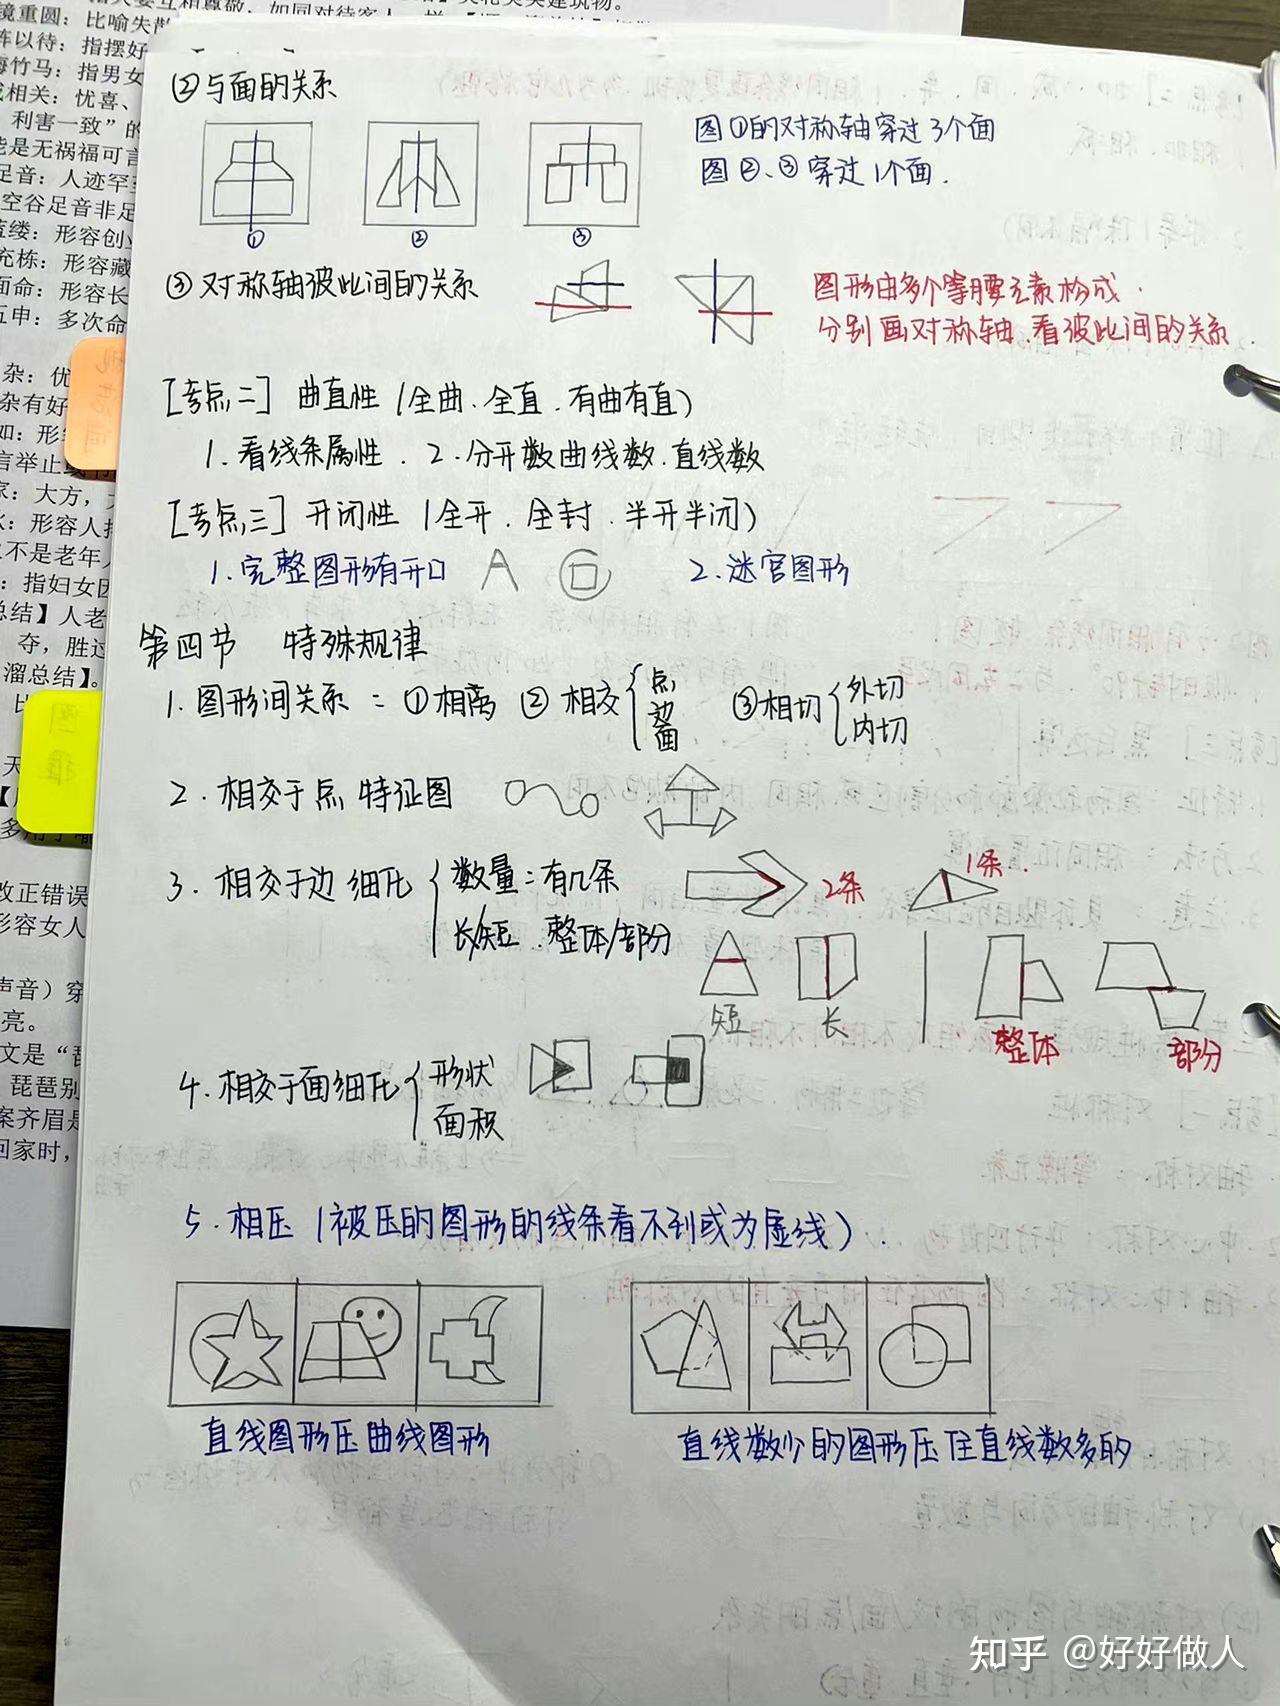 互相尊敬，如同对待客人一样
镜重圆：比喻失散
阵以待：指摆好
梅竹马：指男女
戚相关：忧喜、
利害一致”的
能是无祸福可言
足音：人迹罕至
空谷足音非足
蓝缕：形容创业
充栋：形容藏
面命：形容长
五申：多次命
杂：优
杂有好
如：形
言举止或
家：大方，
水：形容人
不是老年人
：指妇女因
总结】人老
夺，胜过
溜总结】。
改正错误
形容女人
声音）穿
亮。
文是“琵
琵琶别
案齐眉是
回家时，
②与面的关系
① ② ③
图①的对称轴穿过3个面
图②、③穿过1个面.
③对称轴彼此间的关系
图形由多个等腰元素构成.
分别画对称轴.看彼此间的关系.
[考点二] 曲直性(全曲.全直.有曲有直)
1.看线条属性. 2.分开数曲线数.直线数
[考点三] 开闭性(全开.全封.半开半闭)
1.完整图形有开口 2.迷宫图形
第四节 特殊规律
1.图形间关系=①相离 ②相交 点 边 面 ③相切 外切 内切
2.相交于点 特征图
3.相交于边 细化 数量=有几条 2条 1条.
长/短.整体/部分
短 长 整体 部分
4.相交于面细化 形状
面积
5.相压(被压的图形的线条看不到或为虚线).
直线图形压曲线图形 直线数少的图形压住直线数多的.
知乎 @好好做人